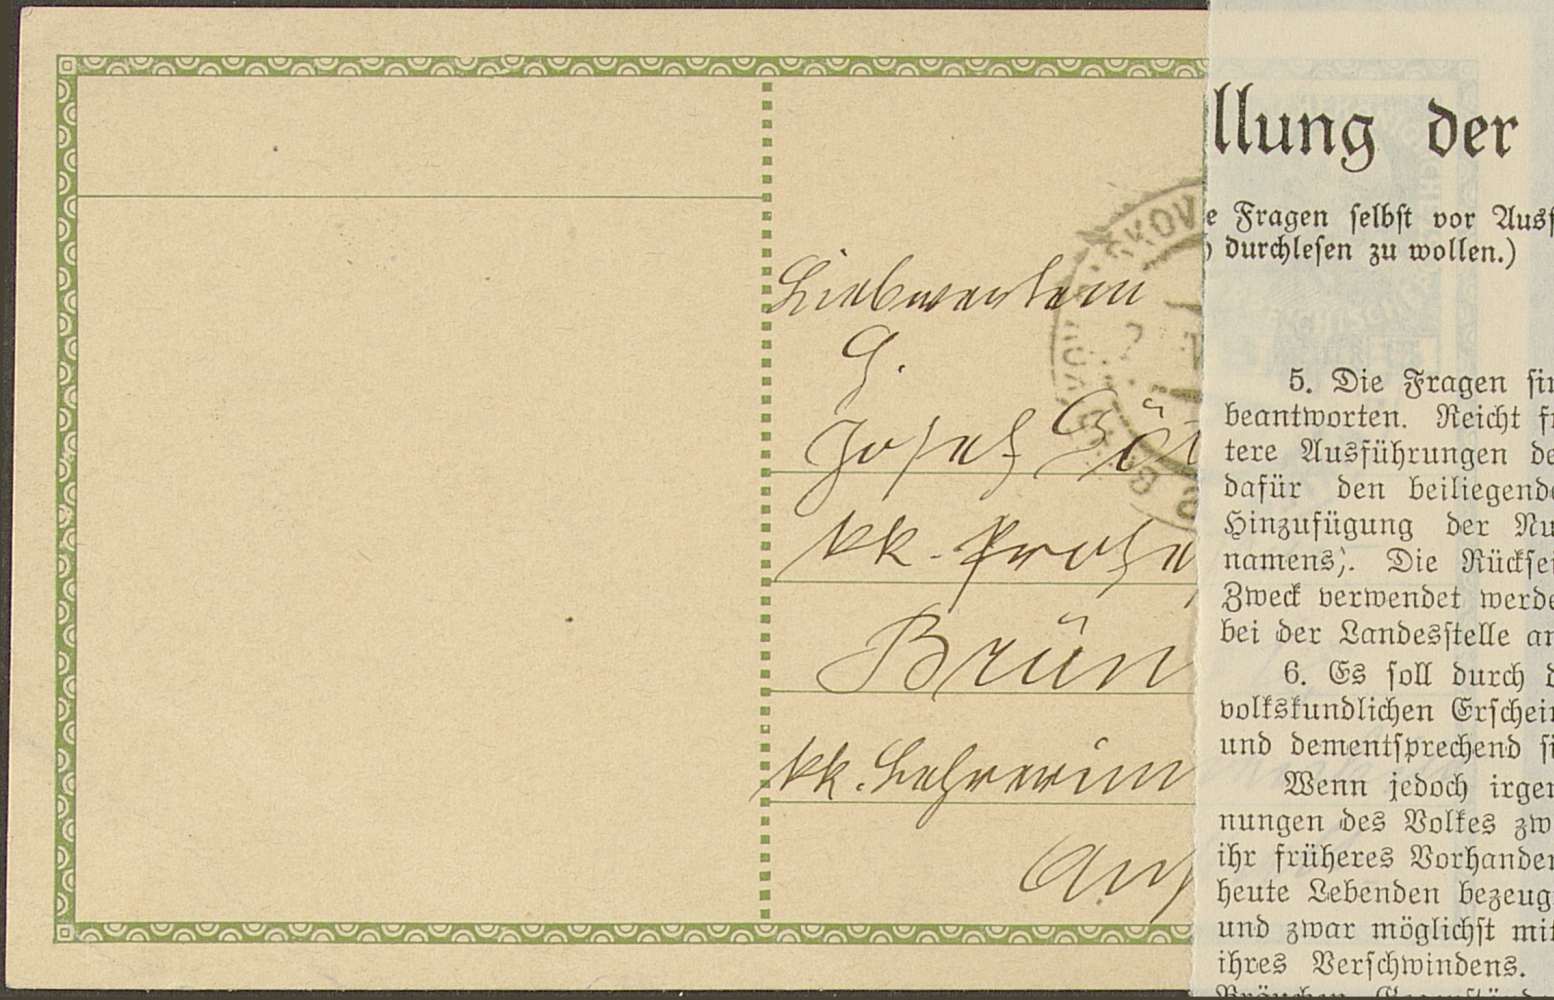 Liebwertem
H.
Josef Göt
kk. Profe
Brün
kk. Lehrerin
Ans
SKOV
llung der
e Fragen selbst vor Ausf
durchlesen zu wollen.)
5. Die Fragen sin
beantworten. Reicht fr
tere Ausführungen de
dafür den beiliegende
Hinzufügung der Nu
namens). Die Rücksei
Zweck verwendet werde
bei der Landesstelle an
6. Es soll durch d
volkskundlichen Erschein
und dementsprechend si
Wenn jedoch irgen
nungen des Volkes zw
ihr früheres Vorhanden
heute Lebenden bezeug
und zwar möglichst mit
ihres Verschwindens.